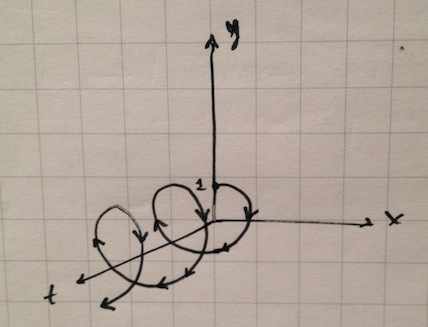 y
1
x
t